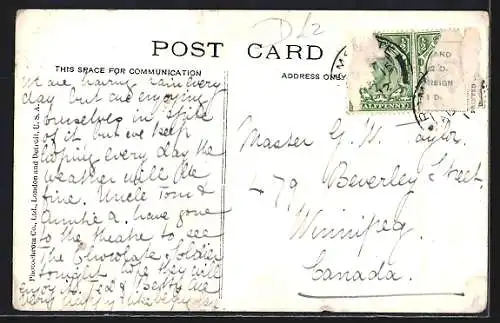 D L2
POST CARD
THIS SPACE FOR COMMUNICATION
ADDRESS ONLY
We are having rain every
day but are enjoying
ourselves in spite
of it, but we keep
hoping every day the
weather will be
fine. Uncle Tom &
Auntie A. have gone
to the theatre to see
The Chocolate Soldier
tonight. hope they will
enjoy it. Ted & Betty are
very happy
Photochrom Co., Ltd., London and Detroit, U.S.A.
HALFPENNY
CARD
FOREIGN
1 D.
PRINTED
Master G. W. Taylor
479 Beverley Street
Winnipeg.
Canada.